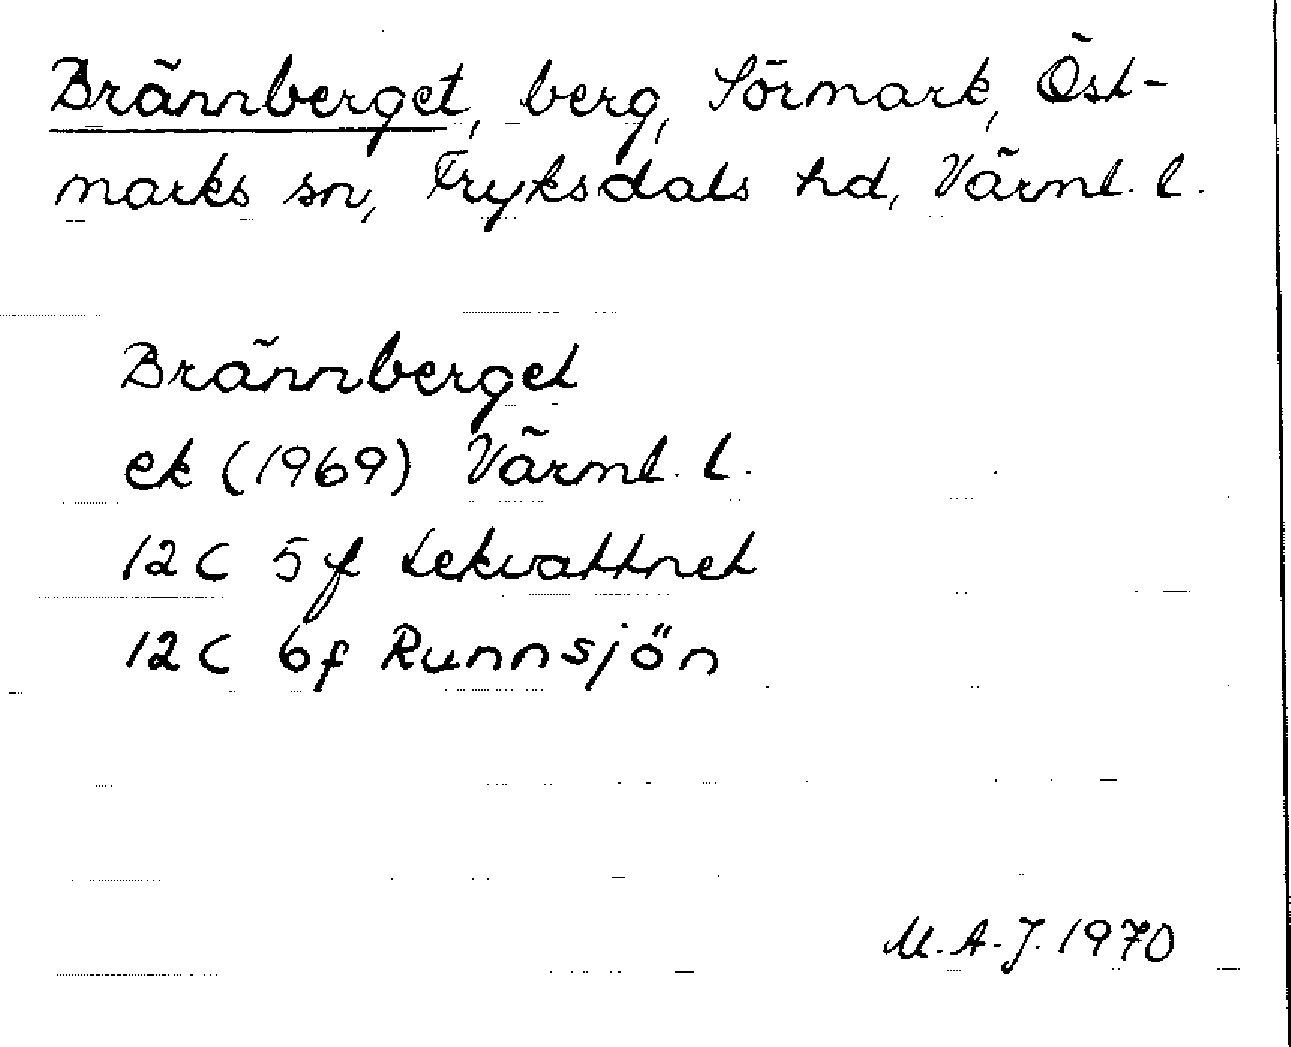 Brännberget, berg, Sörmark, Öst-
marks sn, Fryksdals hd, Värml. l.
Brännberget
ek (1969) Värml. l.
12 C 5 f Lekvattnet
12 C 6 f Runnsjön
M.A.J. 1970